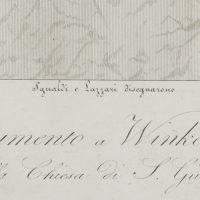 Sgualdi e Lazzari disegnarono
umento a Winke
la Chiesa di S. Gi